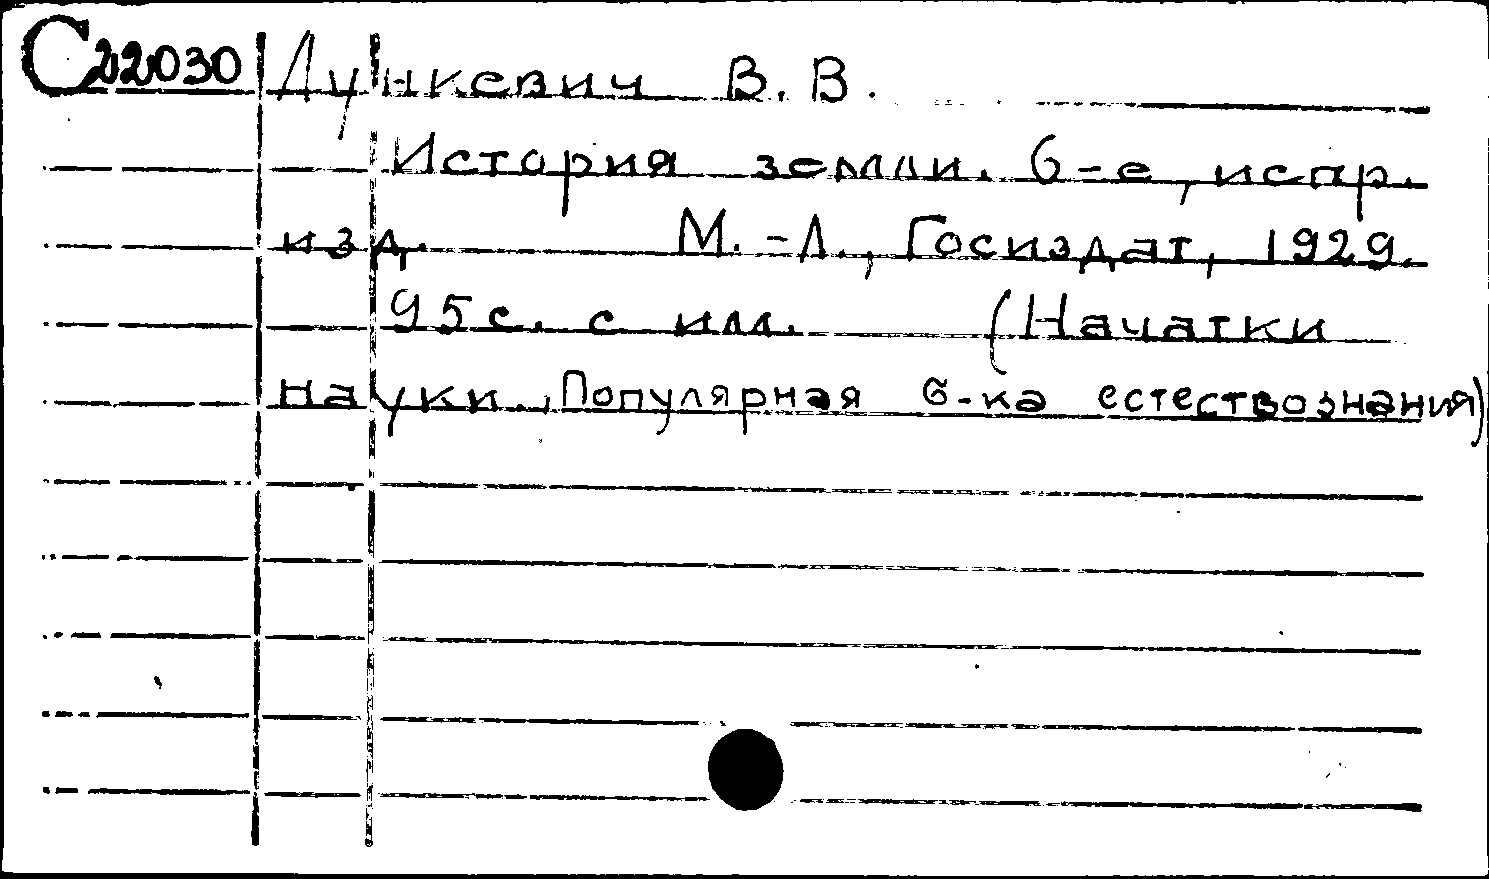 С22030 Лункевич В.В.
История земли. 6-е, испр.
изд. М.-Л., Госиздат, 1929.
95с. с илл. (Начатки
науки. Популярная б-ка естествознания)